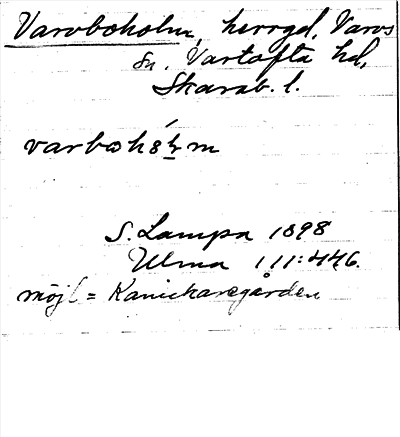 Varvboholm, herrgd, Varvs
sn, Vartofta hd,
Skarab. l.
S. Lampa 1898
Ulma 111:446.
möjl = Kanickaregården